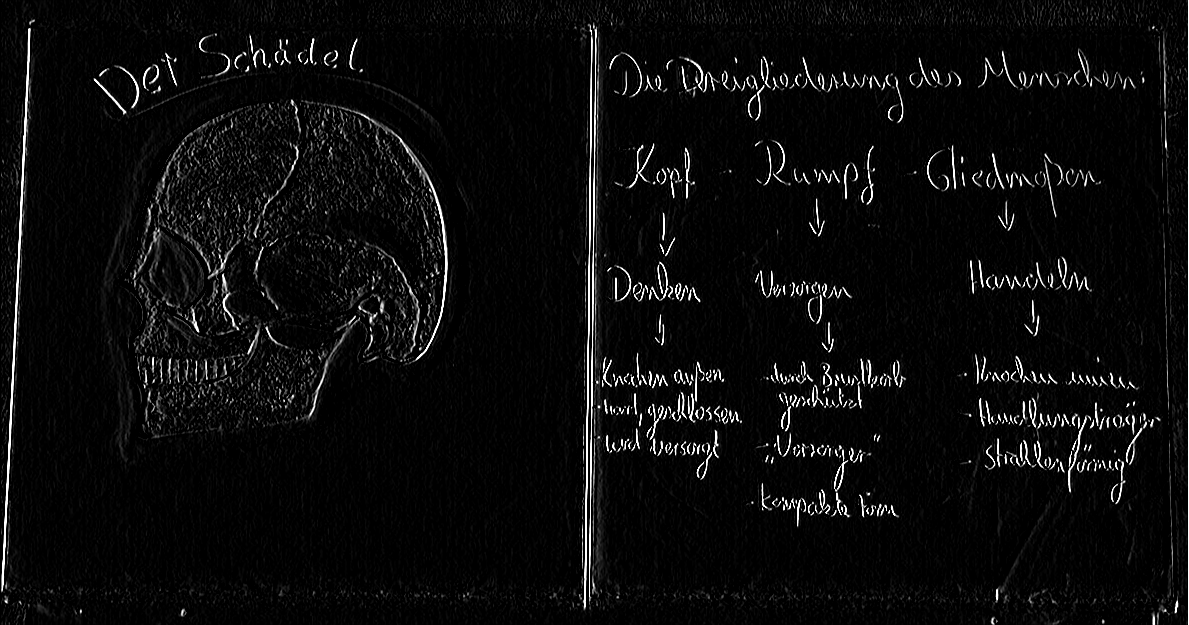 Der Schädel
Die Dreigliederung des Menschen:
Kopf - Rumpf - Gliedmaßen
Denken
Versorgen
Handeln
- Knochen außen
- hart, geschlossen
- wird versorgt
- durch Brustkorb
geschützt
- „Versorger"
- kompakte Form
- Knochen innen
- Handlungsträger
- Strahlenförmig